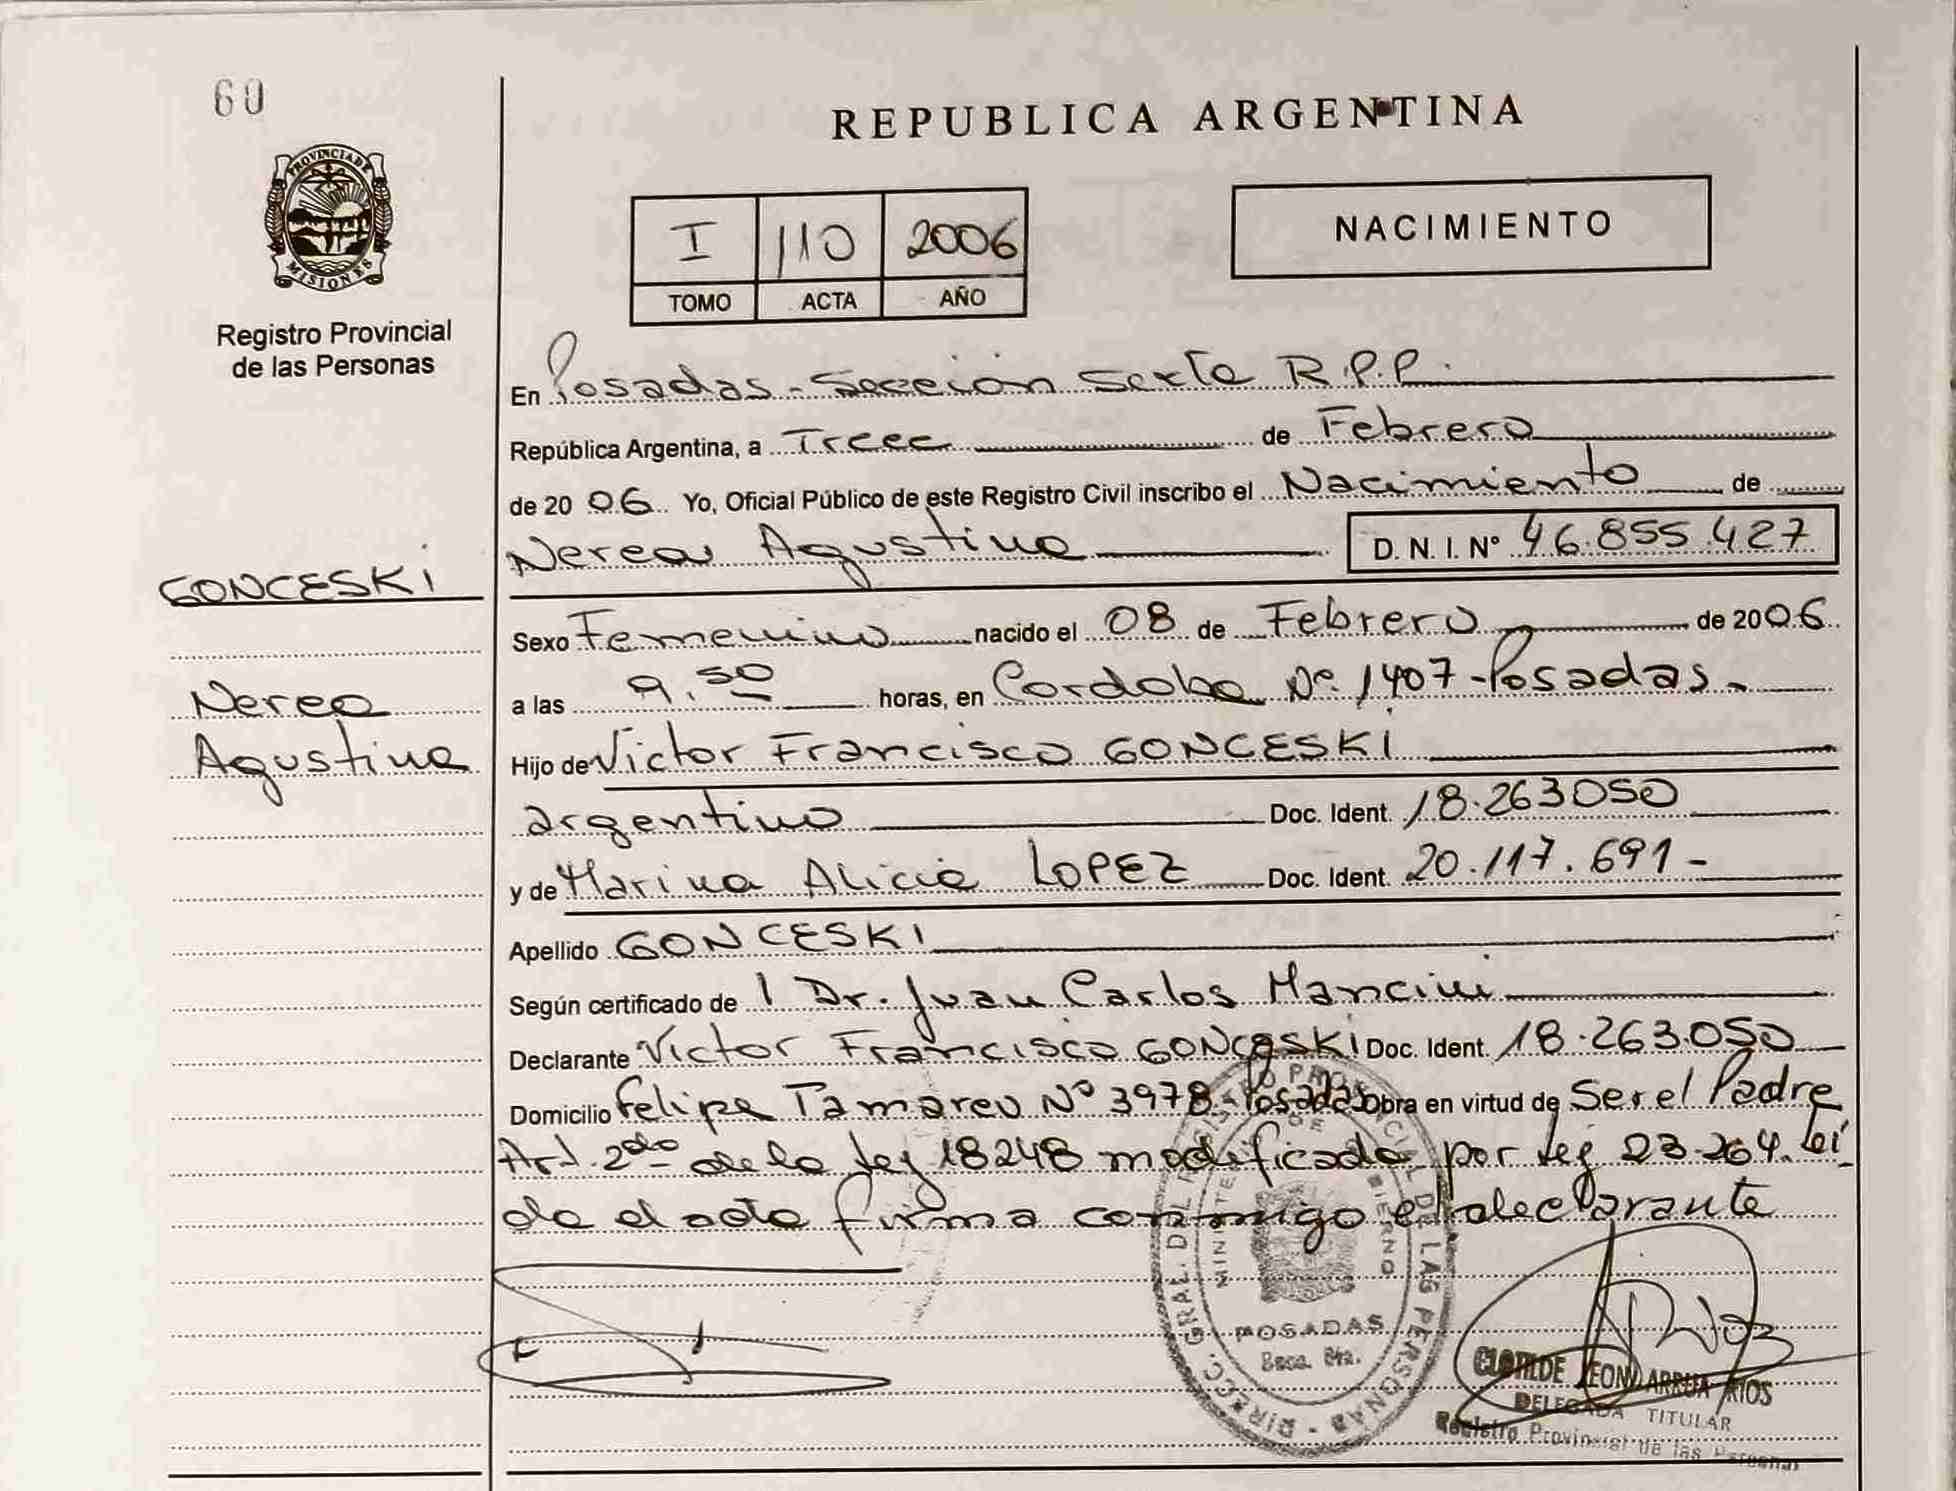 60
REPUBLICA ARGENTINA
PROVINCIA DE
MISIONES
Registro Provincial
de las Personas
I 110 2006
TOMO ACTA AÑO
NACIMIENTO
En Posadas - Sección Sexta R.P.P.
República Argentina, a Trece de Febrero
de 2006 Yo, Oficial Público de este Registro Civil inscribo el Nacimiento de
Nerea Agustina D. N. I. Nº 46.855.427
GONCESKI
Sexo Femenino nacido el 08 de Febrero de 2006
Nerea
a las 9.50 horas, en Cordoba Nº 1407 - Posadas -
Agustina
Hijo de Victor Francisco GONCESKI
argentino Doc. Ident. 18.263050
y de Marina Alicia LOPEZ Doc. Ident. 20.117.691 -
Apellido GONCESKI
Según certificado de 1 Dr. Juan Carlos Mancini
Declarante Victor Francisco GONCESKI Doc. Ident. 18.263.050
Domicilio Felipe Tamareu Nº 3978 - Posadas Obra en virtud de Ser el Padre
Art. 2do de la ley 18248 modificada por ley 23.264. Leí
da el acta firma conmigo el declarante
DIRECC. GRAL. DEL REGISTRO PROVINCIAL DE LAS PERSONAS
MINISTERIO DE GOBIERNO
POSADAS
Secc. 6ta.
CLOTILDE LEONI ARRUA RIOS
DELEGADA TITULAR
Registro Provincial de las Personas